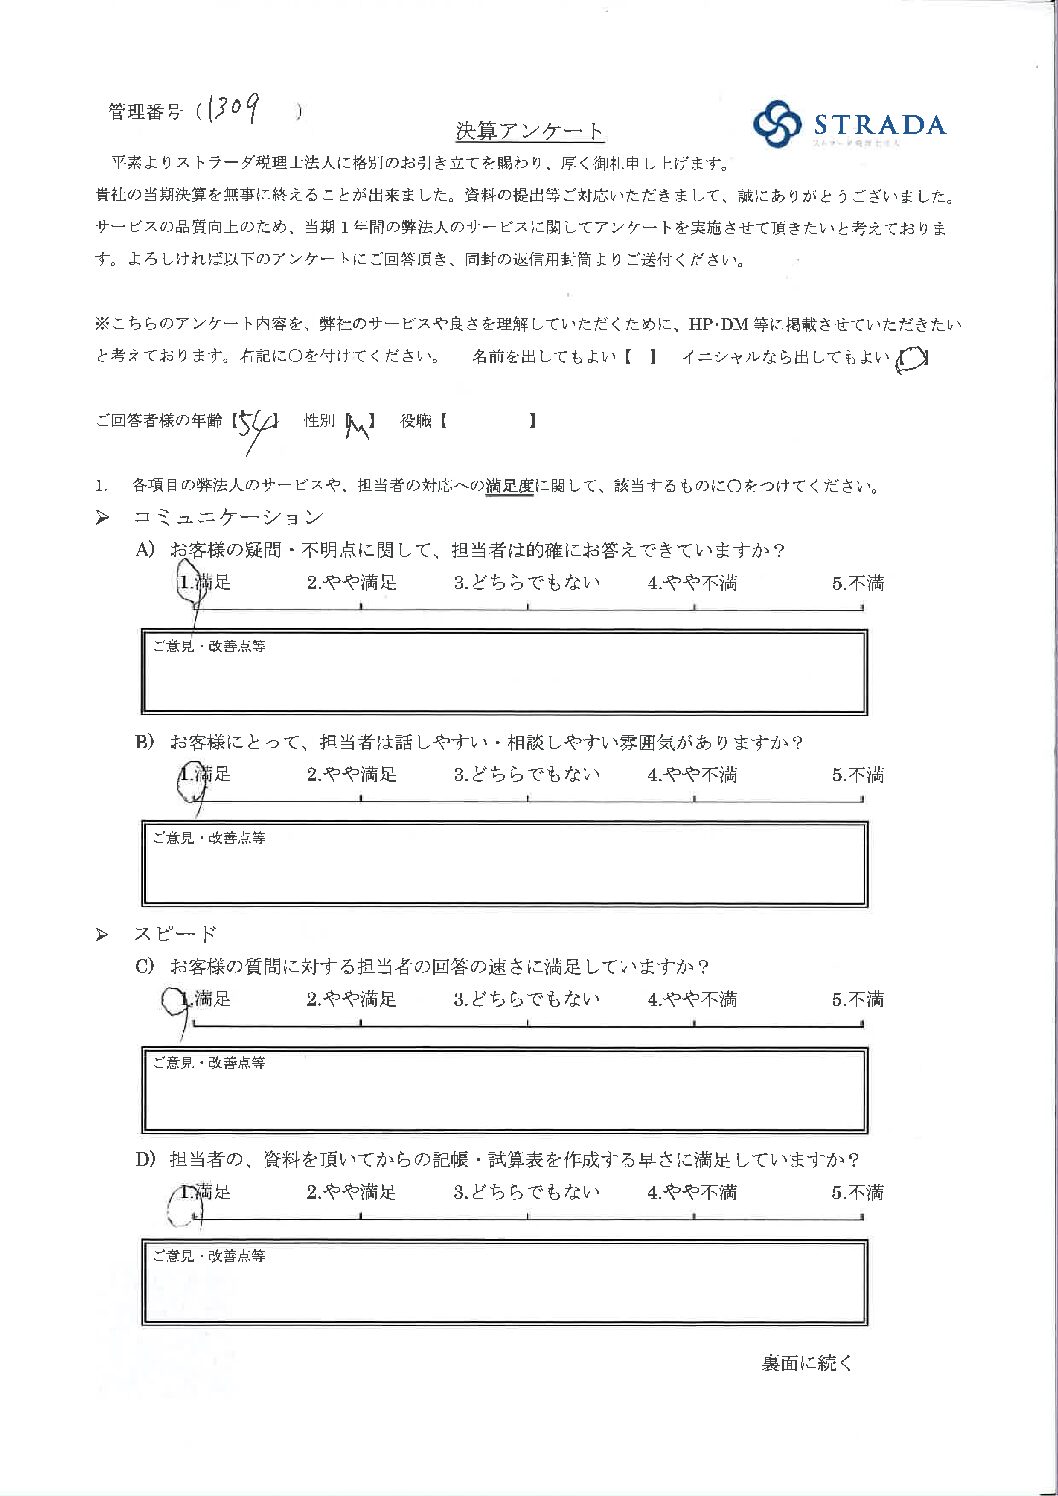 管理番号（1309　　）
STRADA
ストラーダ税理士法人
決算アンケート
平素よりストラーダ税理士法人に格別のお引き立てを賜わり、厚く御礼申し上げます。
貴社の当期決算を無事に終えることが出来ました。資料の提出等ご対応いただきまして、誠にありがとうございました。
サービスの品質向上のため、当期１年間の弊法人のサービスに関してアンケートを実施させて頂きたいと考えておりま
す。よろしければ以下のアンケートにご回答頂き、同封の返信用封筒よりご送付ください。
※こちらのアンケート内容を、弊社のサービスや良さを理解していただくために、HP・DM 等に掲載させていただきたい
と考えております。右記に〇を付けてください。　名前を出してもよい【　】　イニシャルなら出してもよい【〇】
ご回答者様の年齢【54】　性別【M】　役職【　　　　　】
1.　各項目の弊法人のサービスや、担当者の対応への満足度に関して、該当するものに〇をつけてください。
➢　コミュニケーション
A) お客様の疑問・不明点に関して、担当者は的確にお答えできていますか？
1.満足　2.やや満足　3.どちらでもない　4.やや不満　5.不満
ご意見・改善点等
B) お客様にとって、担当者は話しやすい・相談しやすい雰囲気がありますか？
1.満足　2.やや満足　3.どちらでもない　4.やや不満　5.不満
ご意見・改善点等
➢　スピード
C) お客様の質問に対する担当者の回答の速さに満足していますか？
1.満足　2.やや満足　3.どちらでもない　4.やや不満　5.不満
ご意見・改善点等
D) 担当者の、資料を頂いてからの記帳・試算表を作成する早さに満足していますか？
1.満足　2.やや満足　3.どちらでもない　4.やや不満　5.不満
ご意見・改善点等
裏面に続く